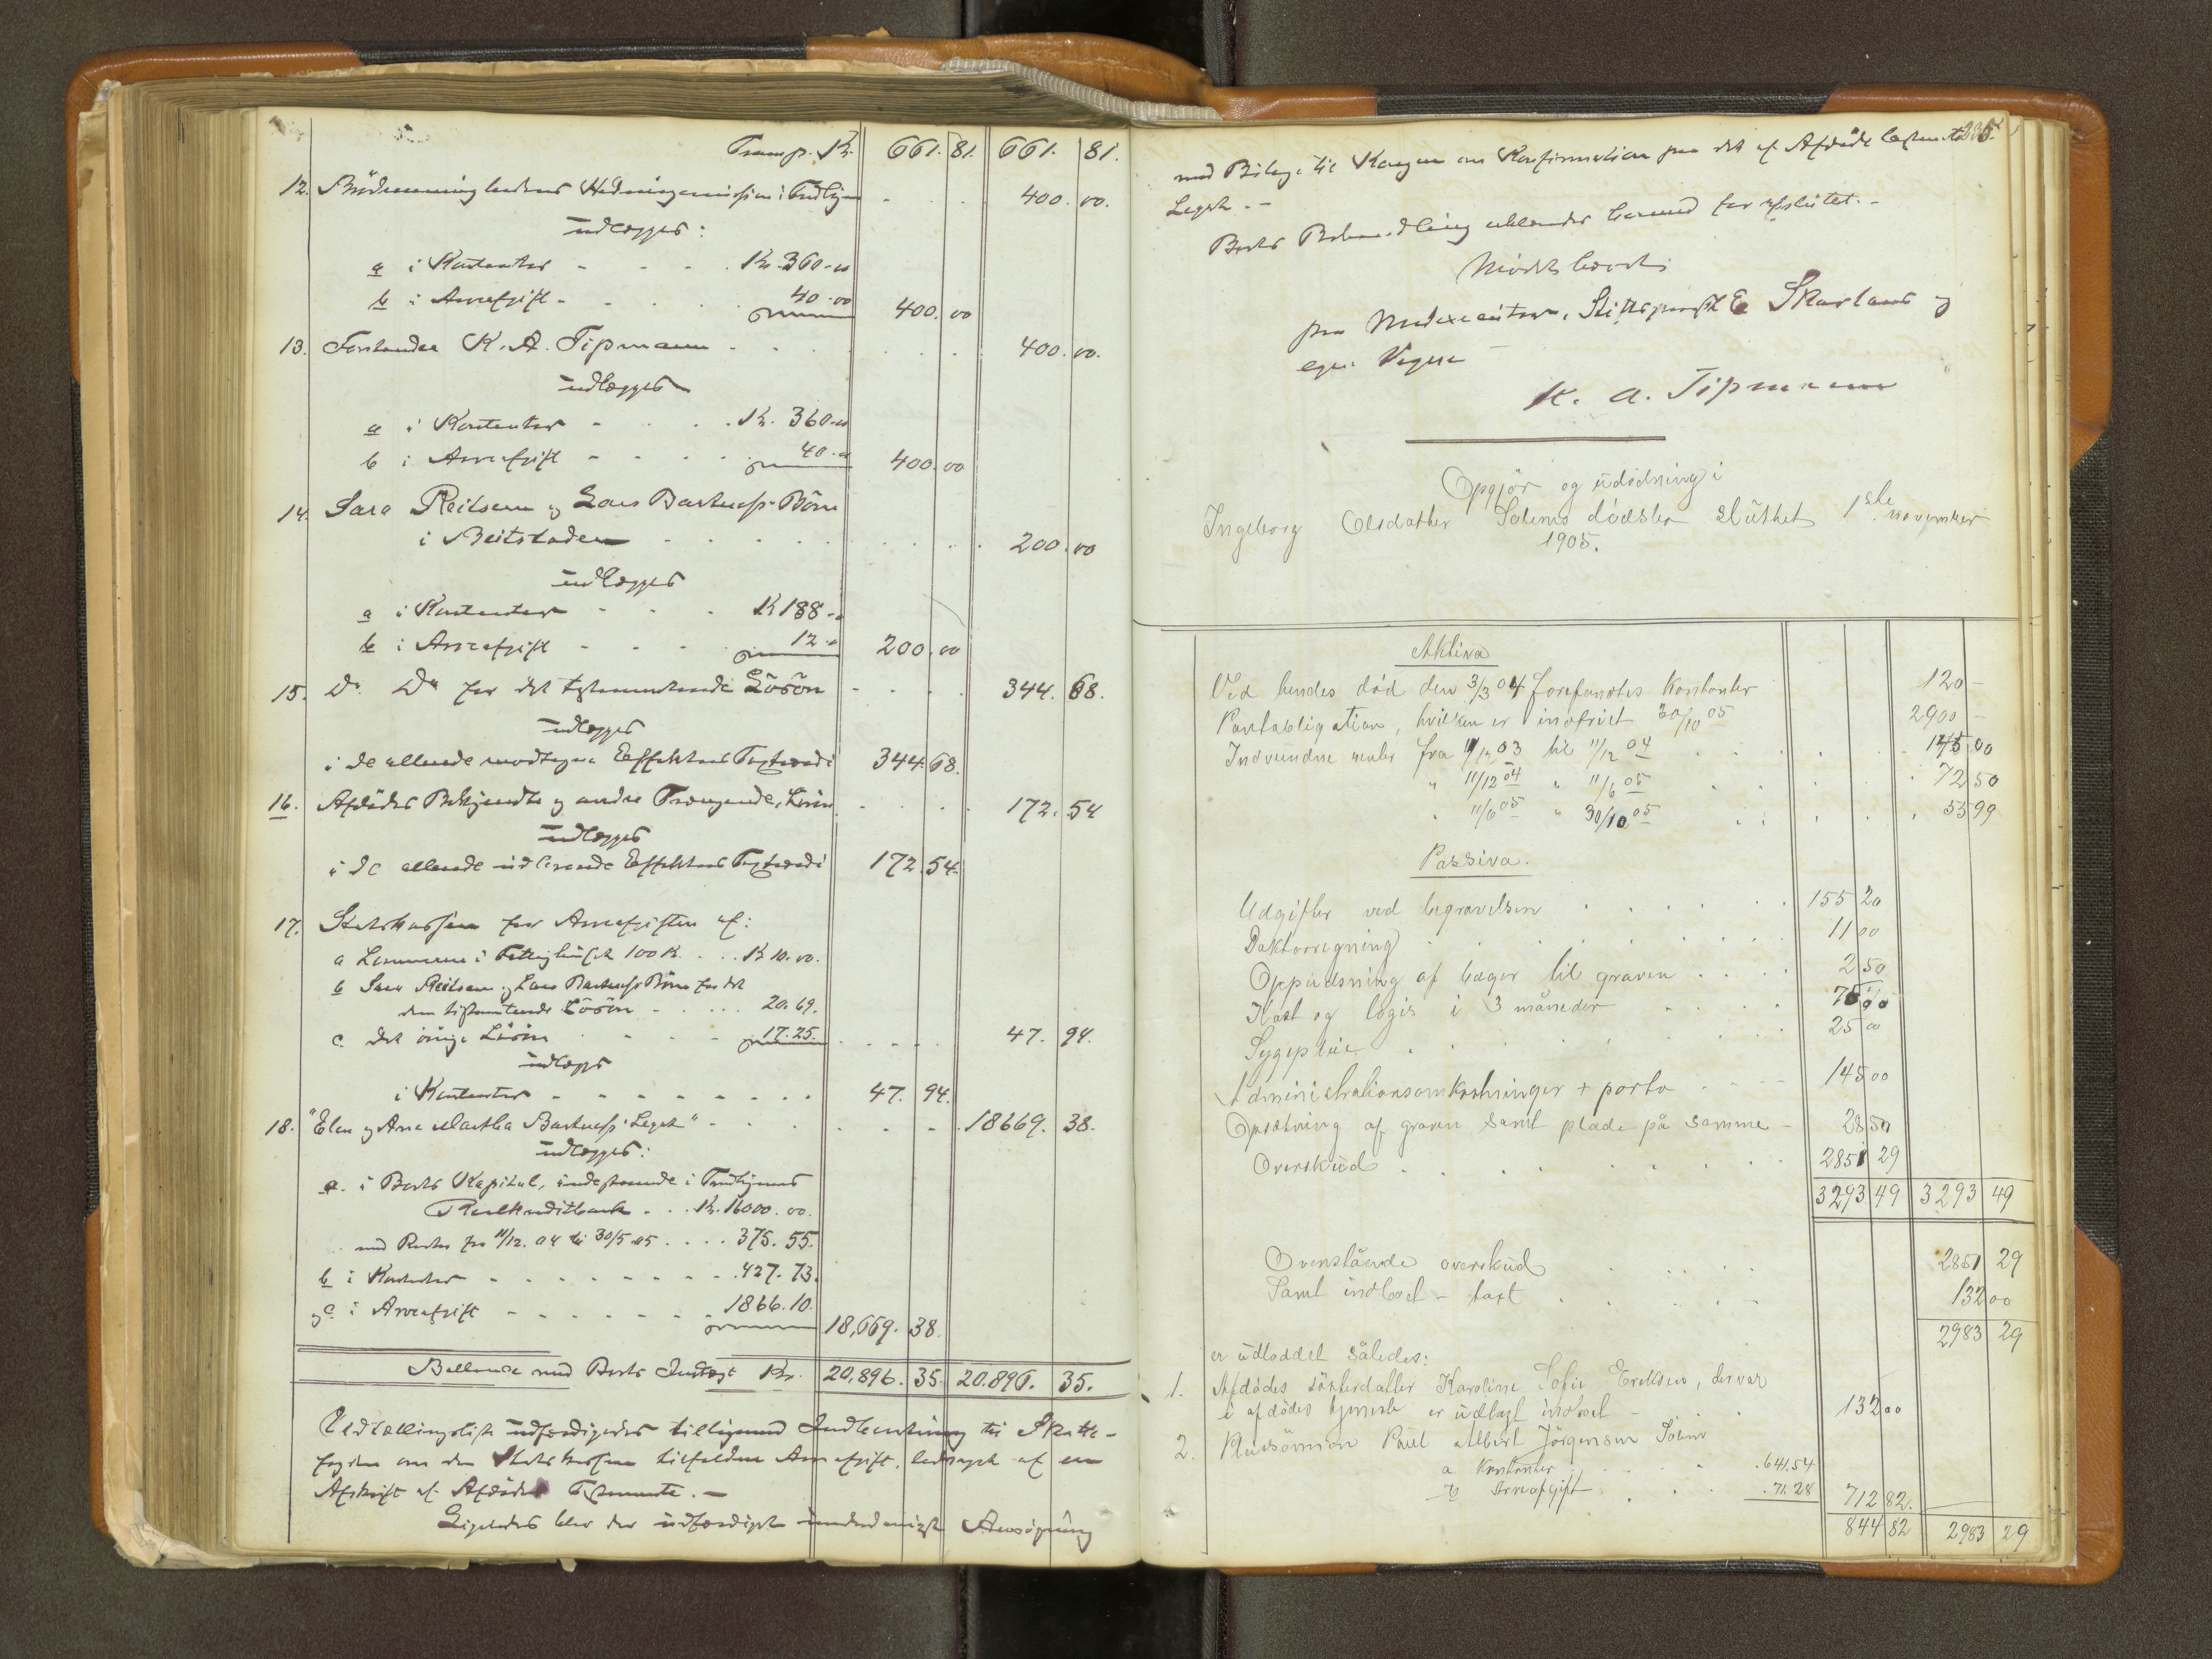 Transp. Kr. 661. 81. 661. 81.
12. Brödremenighedens Hedningemission i Trdhjem - - - 400. 00.
udlægges:
a i Kontanter - - - Kr. 360-00
b i Arveafgift - - - 40-00 400. 00
13. Forstander K. A. Tipmann - - - 400. 00.
udlægges
a i Kontanter - - - Kr. 360-00
b i Arveafgift - - - 40-00 400. 00
14. Sara Reitsem og Lars Bartnæss' Börn
i Beitstaden - - - 200. 00
udlægges
a i Kontanter - - - Kr 188-00
b i Arveafgift - - - 12-00 200. 00
15. Do Do for det testamenterede Lösöre - - - 344. 68.
udlægges
i de allerede modtagne Effekters Taxtværdi 344. 68.
16. Afdødes Bekjendte og andre Trængende, Lösöre - - - 172. 54
udlægges
i de allerede udleverede Effekters Taxtværdi 172. 54.
17. Statskassen for Arveafgiften af:
a Lemmerne i Fattighuset 100 K. . . . K 10. 00.
b Sara Reitsem og Lars Bartnæss' Börn for det
dem testamenterede Lösöre - - - 20. 69.
c. det övrige Lösöre - - - 17. 25. - - - 47. 94.
udlægges
i Kontanter - - - 47. 94.
18. "Elen og Ane Martha Bartnæss' Legat" - - - 18669. 38.
udlægges:
a. i Boets Kapital, indestaaende i Trondhjems
Realkreditbank . . . Kr. 16000. 00.
med Renter fra 11/12. 04 til 30/5 05 . . . . 375. 55.
b i Kontanter - - - 427. 73.
og c i Arveafgift - - - 1866. 10. 18,669. 38.
Ballance med Boets Indtægt Kr. 20,896. 35. 20.896. 35.
Udtællingsliste udfærdigedes tilligemed Indberetning til Skatte-
fogden om den Statskassen tilfaldne Arveafgift, ledsaget af en
Afskrift af Afdødes Testamente. -
Ligeledes blev der udfærdiget underdanigst Ansögning
335.
med Bilage til Kongen om Konfirmation paa det af Afdøde testamenterede
Legat. -
Boets Behandling erklæredes hermed for afsluttet. -
paa Medexecutors, Stiftsprovst E Skavlans og
egne Vegne
K. A. Tipmann
Opgjör og udlodning i
Ingeborg Olsdatter Solems dödsbo sluttet 1ste november
1905.
Aktiva
Ved hendes död den 3/3 04 forefandtes kontanter 120 -
Pantobligation, hvilken er indfriet 30/10 05 2900 -
Indvundne renter fra 11/12 03 til 11/12 04 . . . 145 00
" 11/12 04 " 11/6 05 . . . 72 50
" 11/6 05 " 30/10 05 . . . 55 99
Passiva.
Udgifter ved begravelsen . . . 155 20
Doktorregning . . . 11 00
Oppudsning af bæger til graven . . . 2 50
Kost og logis i 3 måneder . . . 75 00
Sygepleie . . . 25 00
Administrationsomkostninger + porto - - - 145 00
Opretning af graven samt plade på samme - 28 50
Overskud . . . 2851 29
3293 49 3293 49
Ovenstående overskud . . . 2851 29
Samt indboet - taxt . . . 132 00
2983 29
er udloddet således:
1. Afdödes sösterdatter Karoline Sofie Eriksen, der var
i afdödes tjeneste er udlagt indboet - 132 00
2. Pleiesönnen Paul Albert Jörgensen Solem
a Kontanter . . . 641.54
b Arveafgift . . . 71.28 712 82.
844 82 2983 29